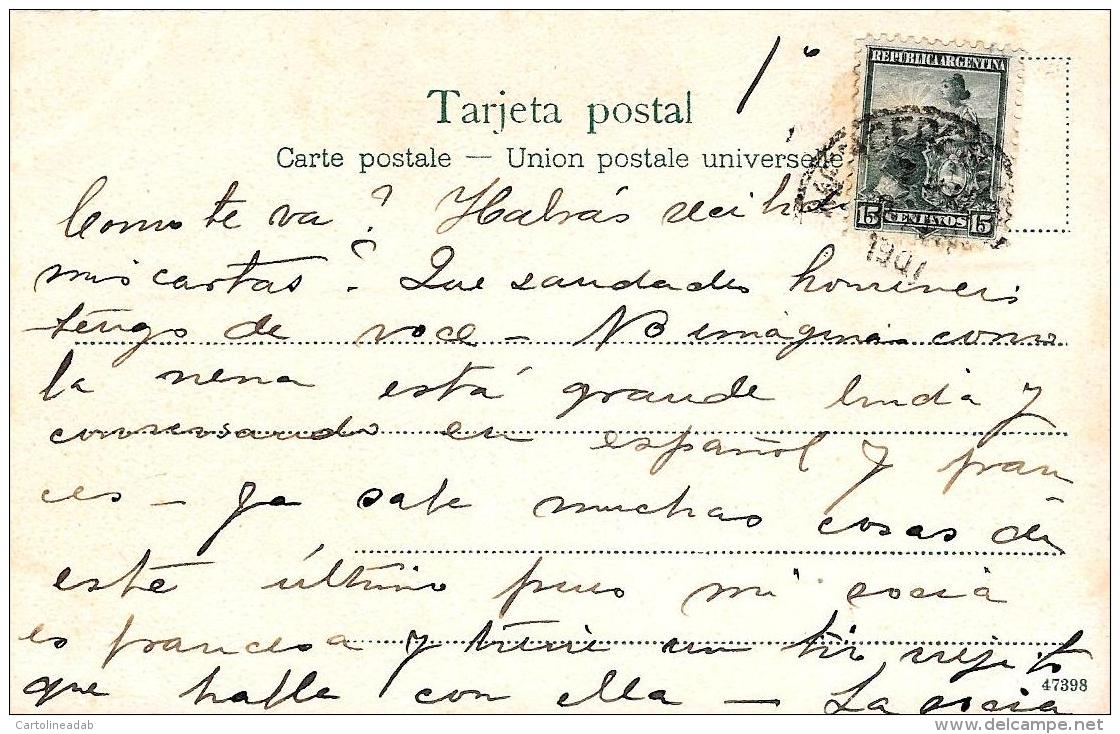 1º
REPUBLICA ARGENTINA
15 CENTAVOS 15
1901
Tarjeta postal
Carte postale — Union postale universelle
Como te va? Habrás recibido
mis cartas? Que saudades
tengo de voce — No imágina como
la nena está grande linda y
conversando en español y fran
ces — Ya sabe muchas cosas de
este último pues mi socia
es francesa y tiene un tio viejito
que habla con ella — La socia
47398
Cartolineadab
delcampe.net